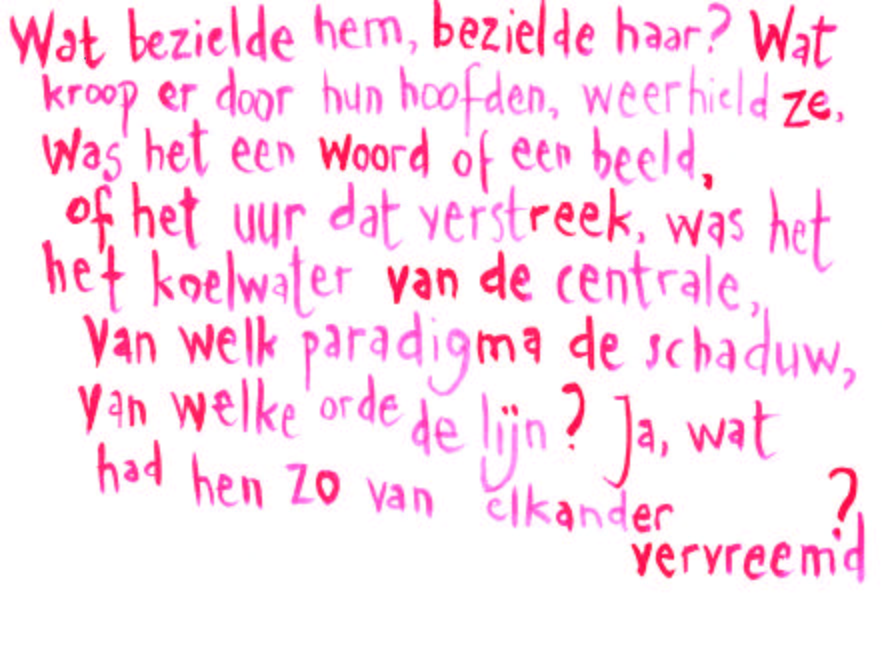 Wat bezielde hem, bezielde haar? Wat
kroop er door hun hoofden, weerhield ze,
Was het een woord of een beeld,
of het uur dat verstreek, was het
het koelwater van de centrale,
Van welk paradigma de schaduw,
Van welke orde de lijn? Ja, wat
had hen zo van elkander
vervreemd?